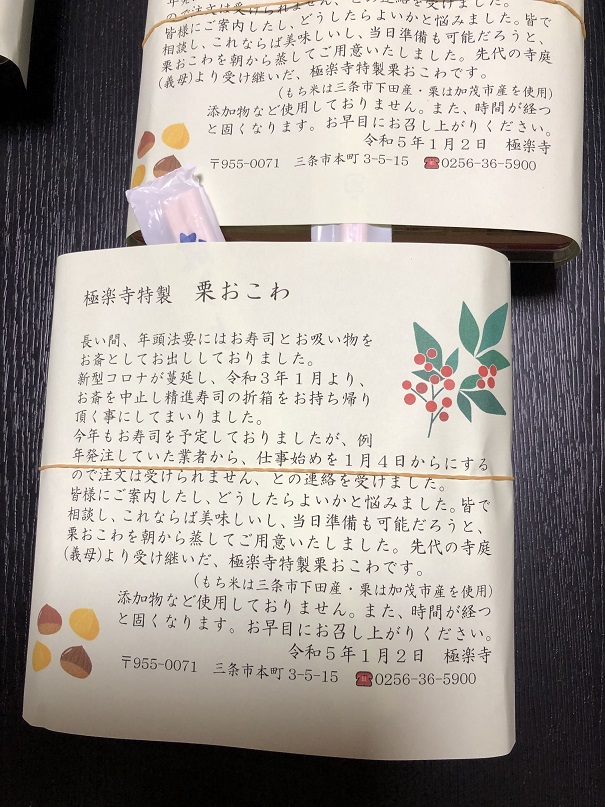 年発注していた業者から、仕事始めを１月４日からにする
ので注文は受けられません、との連絡を受けました。
皆様にご案内したし、どうしたらよいかと悩みました。皆で
相談し、これならば美味しいし、当日準備も可能だろうと、
栗おこわを朝から蒸してご用意いたしました。先代の寺庭
(義母)より受け継いだ、極楽寺特製栗おこわです。
(もち米は三条市下田産・栗は加茂市産を使用)
添加物など使用しておりません。また、時間が経つ
と固くなります。お早目にお召し上がりください。
令和５年１月２日　極楽寺
〒955-0071　三条市本町 3-5-15　☎0256-36-5900
極楽寺特製　栗おこわ
長い間、年頭法要にはお寿司とお吸い物を
お斎としてお出ししておりました。
新型コロナが蔓延し、令和３年１月より、
お斎を中止し精進寿司の折箱をお持ち帰り
頂く事にしてまいりました。
今年もお寿司を予定しておりましたが、例
年発注していた業者から、仕事始めを１月４日からにする
ので注文は受けられません、との連絡を受けました。
皆様にご案内したし、どうしたらよいかと悩みました。皆で
相談し、これならば美味しいし、当日準備も可能だろうと、
栗おこわを朝から蒸してご用意いたしました。先代の寺庭
(義母)より受け継いだ、極楽寺特製栗おこわです。
(もち米は三条市下田産・栗は加茂市産を使用)
添加物など使用しておりません。また、時間が経つ
と固くなります。お早目にお召し上がりください。
令和５年１月２日　極楽寺
〒955-0071　三条市本町 3-5-15　☎0256-36-5900